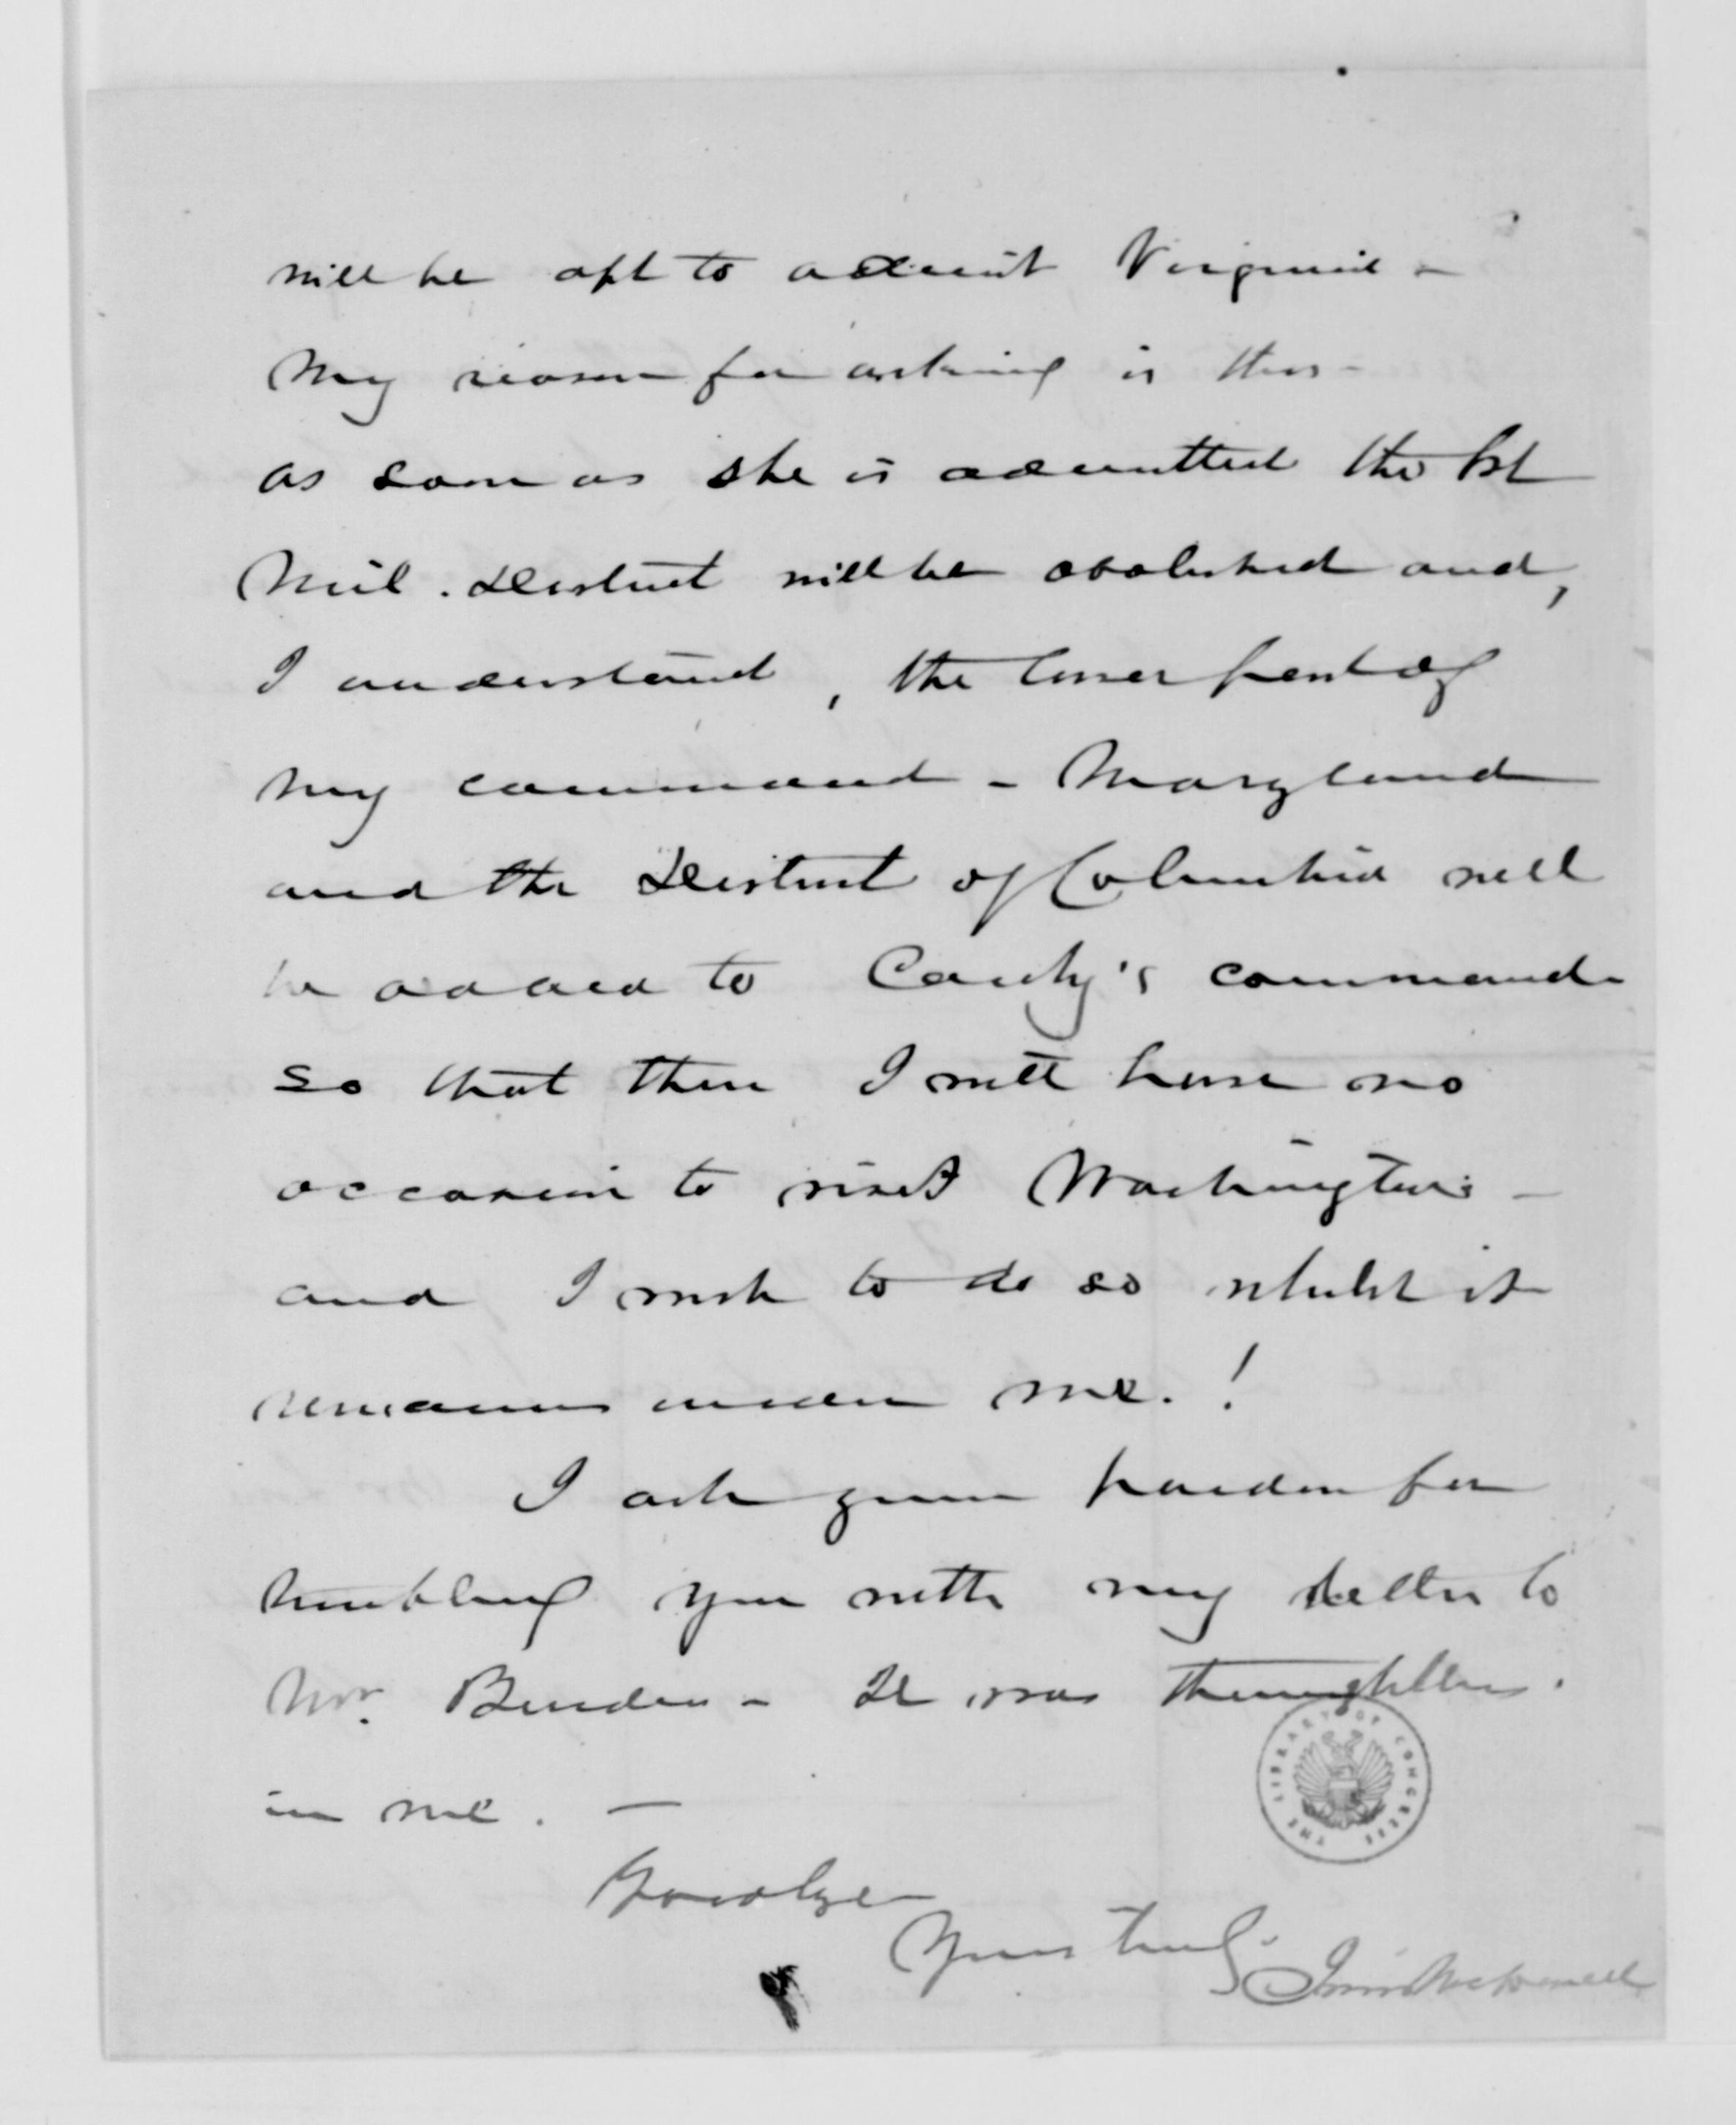 will be apt to admit Virginia -
My reason for asking is this -
as soon as she is admitted the 1st
Mil. District will be abolished and,
I understand, the lower part of
my command - Maryland
and the District of Columbia will
be added to Canby's command
so that then I will have no
occasion to visit Washington -
and I wish to do so whilst it
remains under me. !
I ask your pardon for
troubling you with my letter to
Mr. - It was thoughtless
in me. -
Goodbye
Yours truly
Irvin McDowell
THE LIBRARY OF CONGRESS